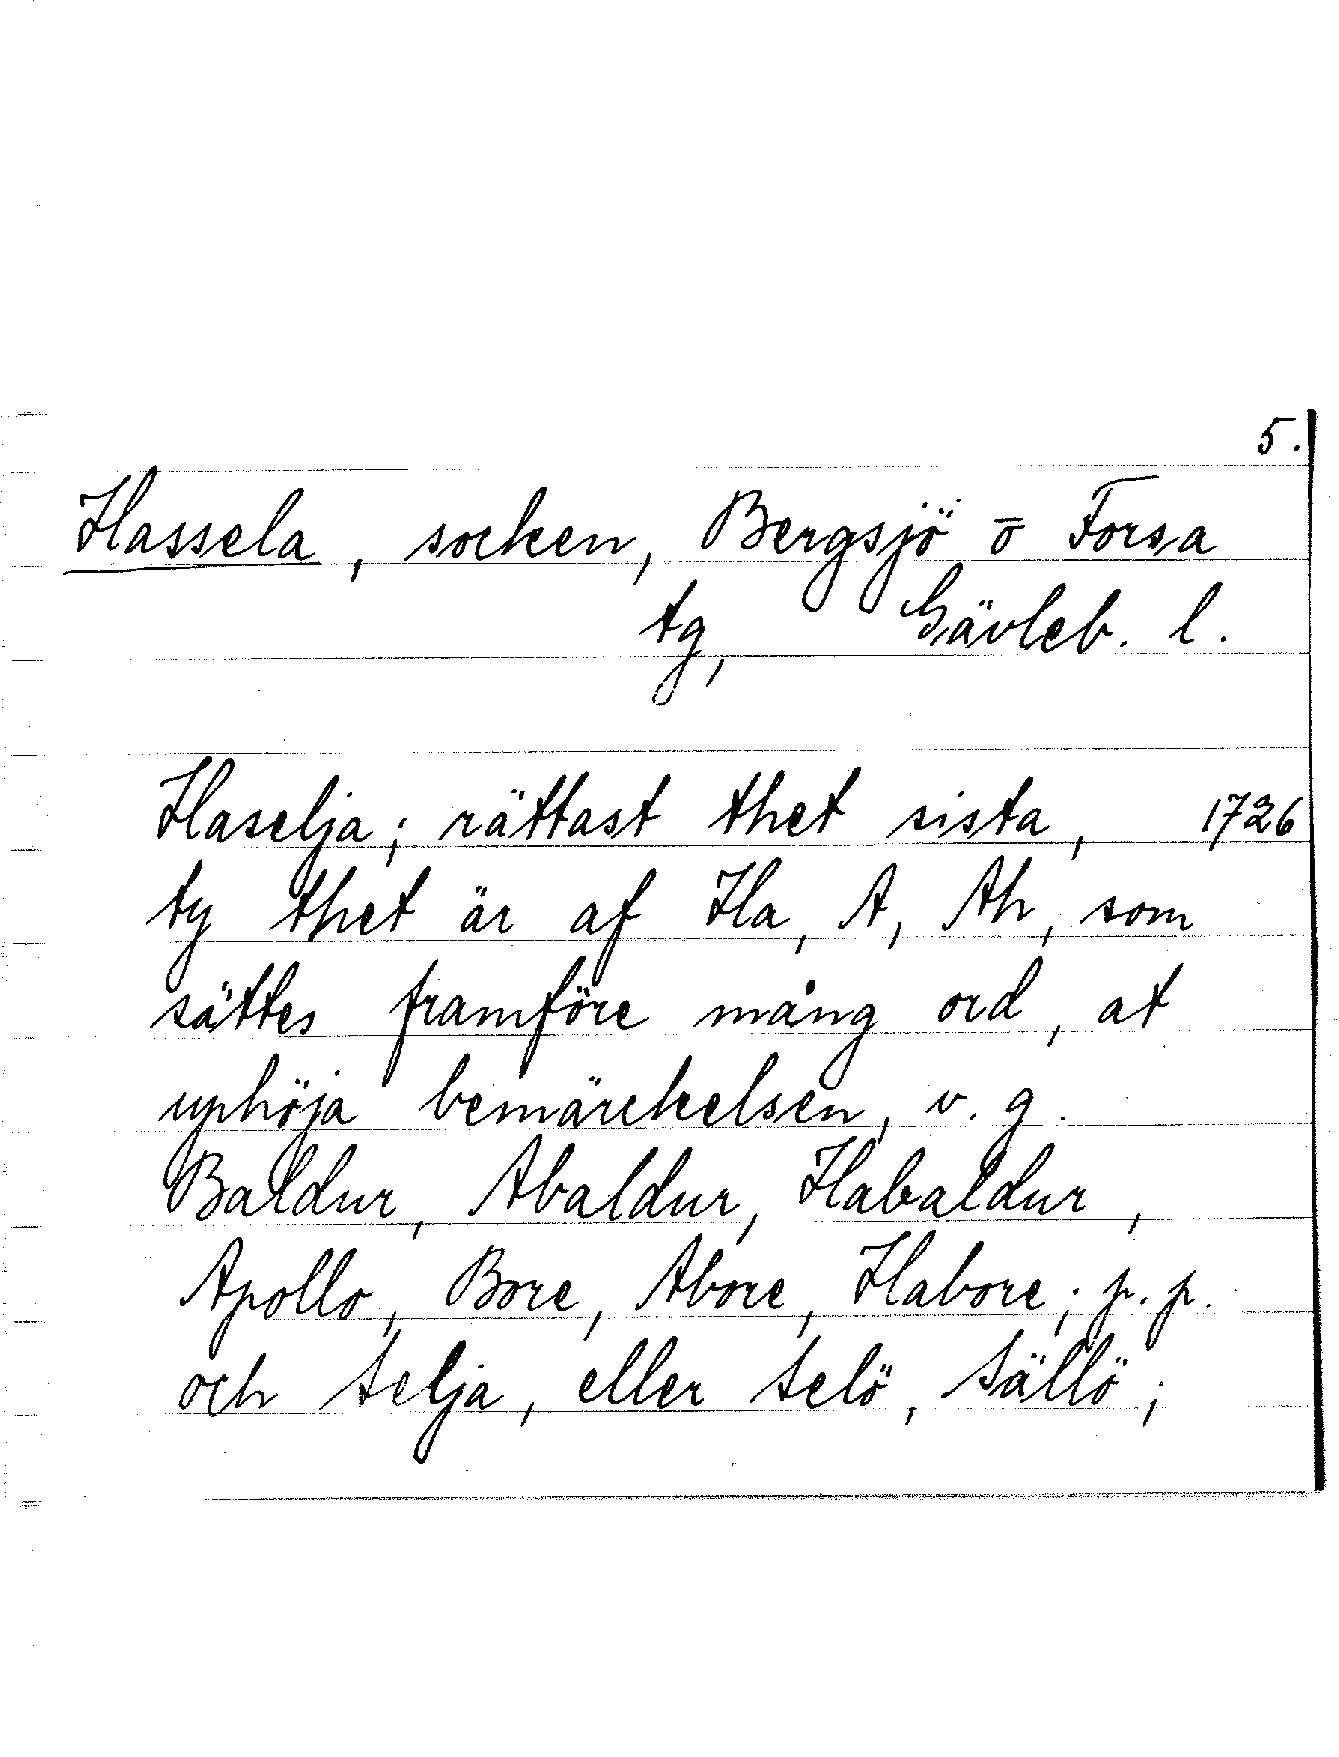 5.
Hassela, socken, Bergsjö o Forsa
tg, Gävleb. l.
Haselja; rättast thet sista, 1726
ty thet är af Ha, A, Ah, som
sättes framföre mång ord, at
uphöja bemärckelsen, v. g.
Baldur, Abaldur, Habaldur,
Apollo, Bore, Abore, Habore; p. p.
och selja, eller selö, sällö;